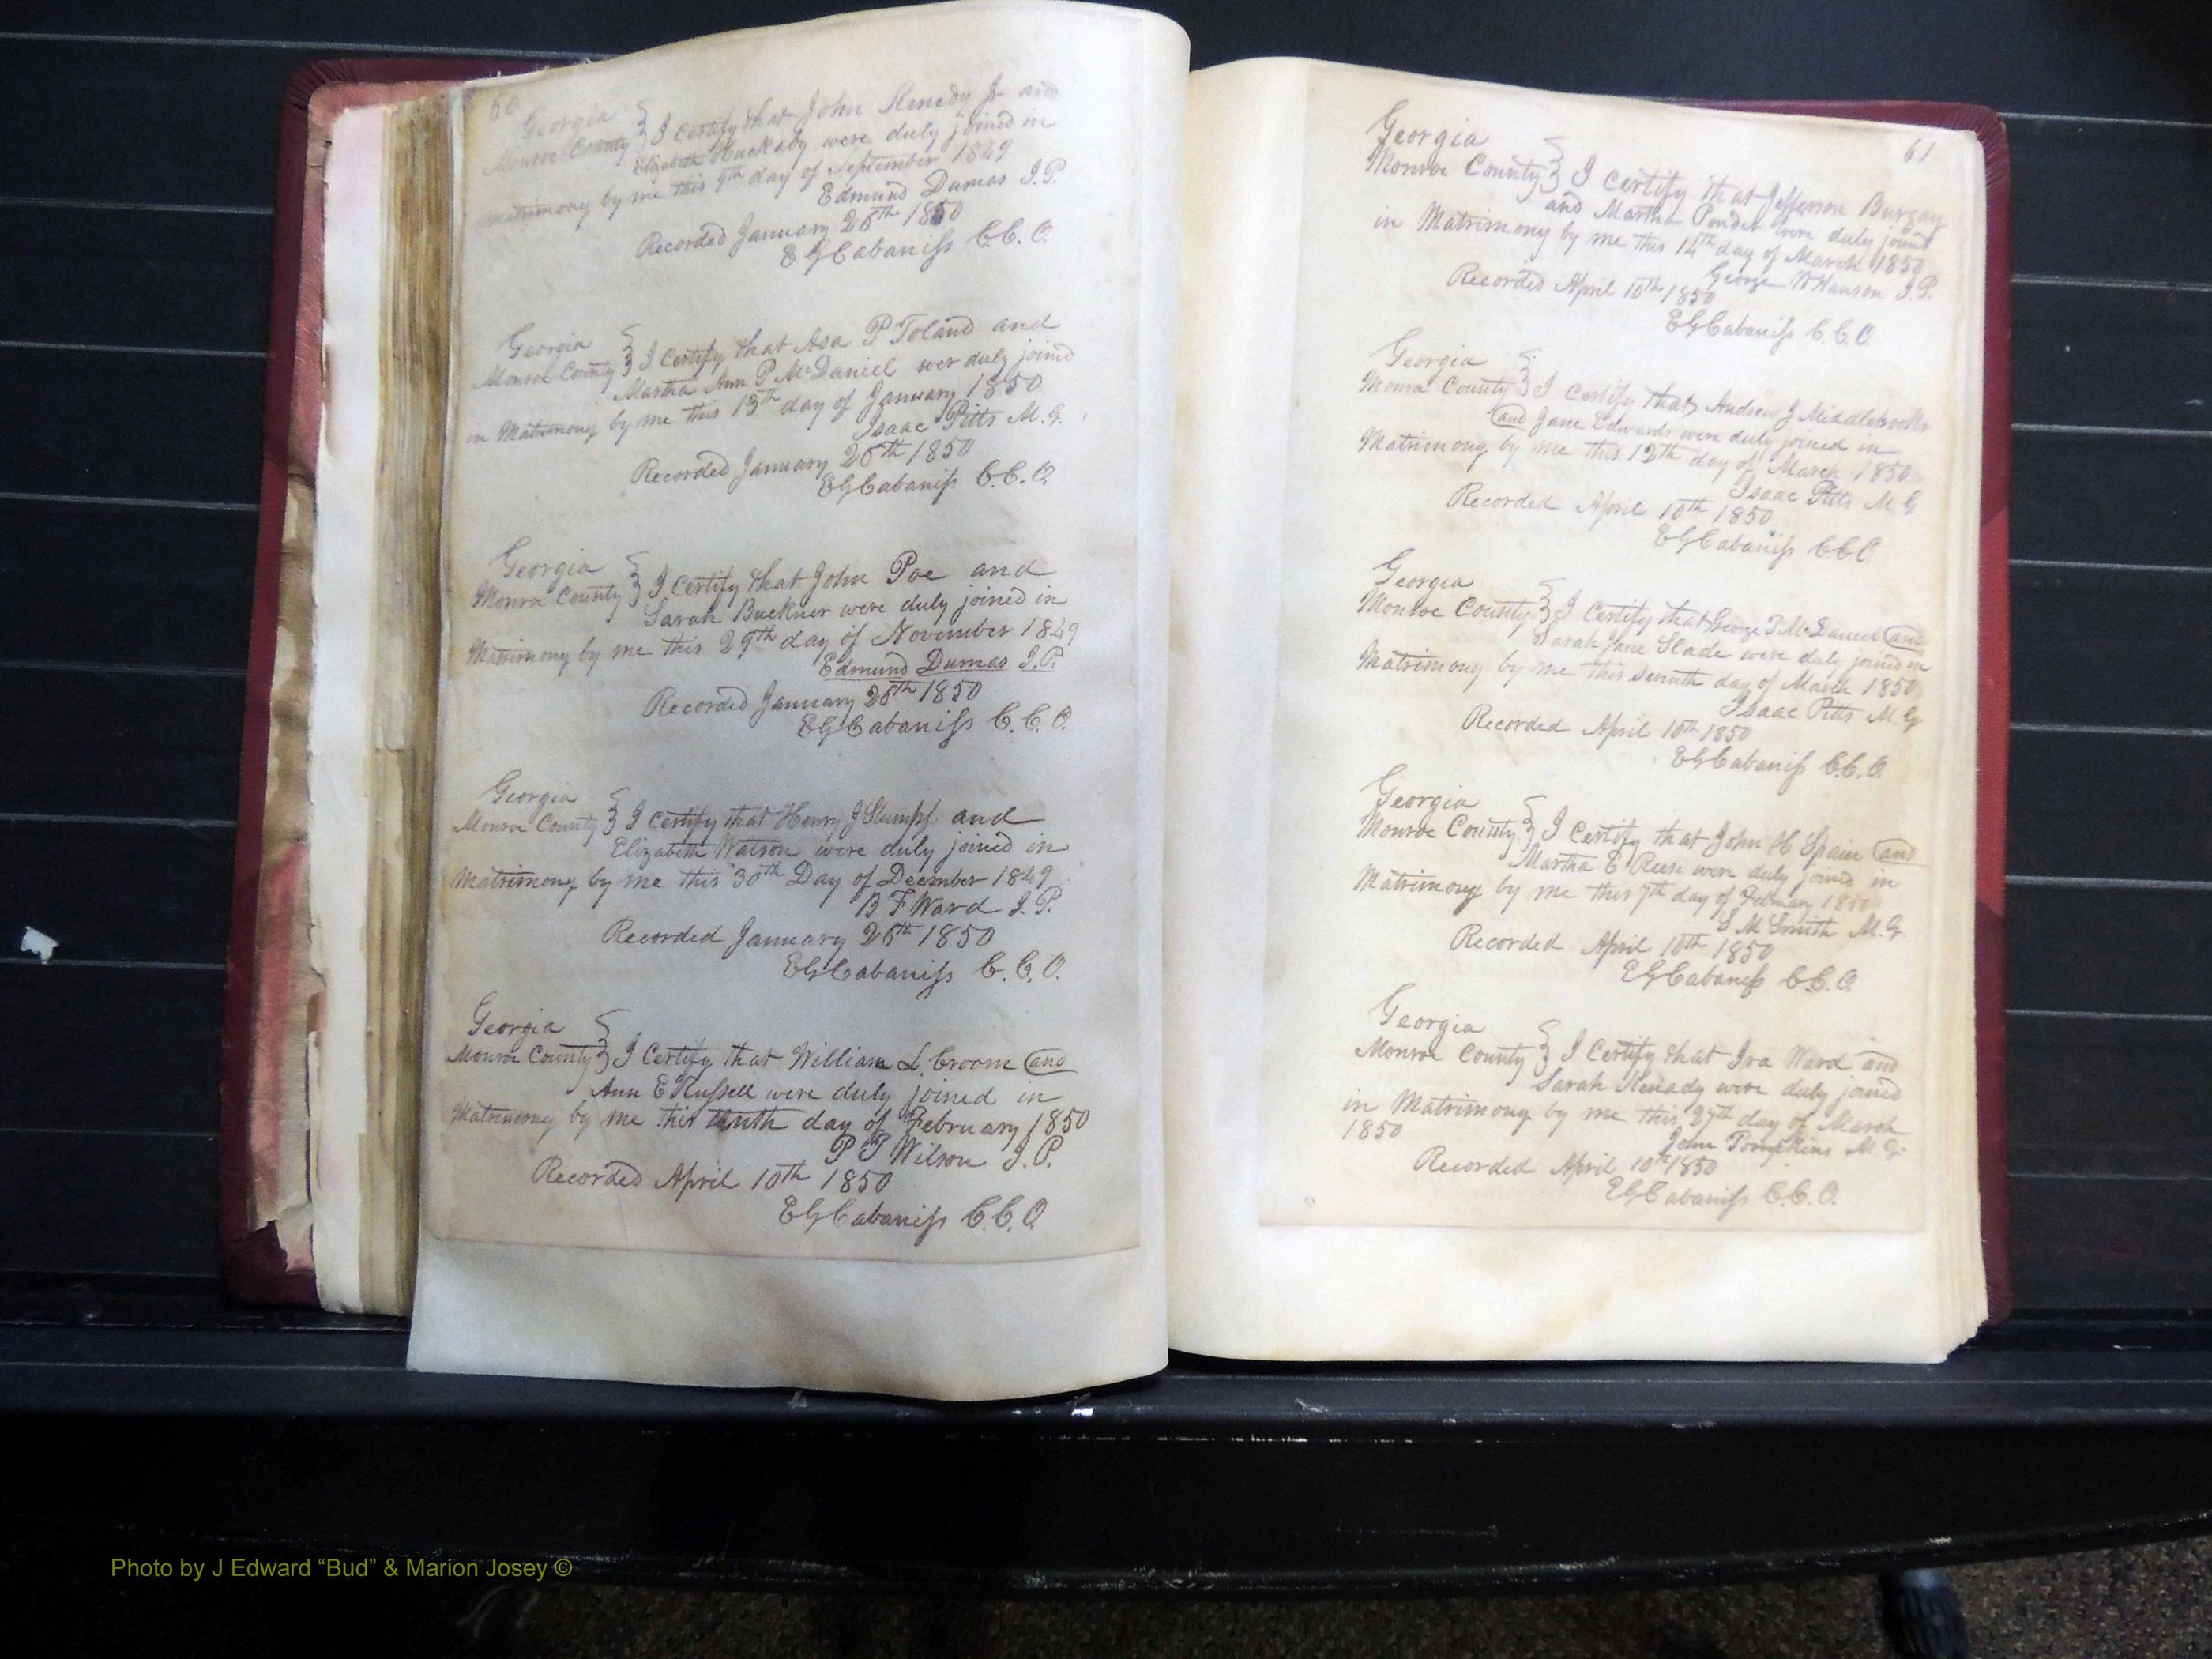 60
Georgia
Monroe County } I Certify that John Kenedy Jr and
Elizabeth Huckaby were duly joined in
matrimony by me this 9th day of September 1849
Edmund Dumas J.P.
Recorded January 26th 1850
E G Cabaniss C.C.O.
Georgia
Monroe County } I Certify that Asa P Toland and
Martha Ann P McDaniel wer duly joined
in Matrimony by me this 13th day of January 1850
Isaac Pitts M.G.
Recorded January 26th 1850
E G Cabaniss C.C.O.
Georgia
Monroe County } I Certify that John Poe and
Sarah Buckner were duly joined in
Matrimony by me this 29th day of November 1849
Edmund Dumas J.P.
Recorded January 26th 1850
E G Cabaniss C.C.O.
Georgia
Monroe County } I Certify that Henry J Stumpf and
Elizabeth Watson were duly joined in
Matrimony by me this 30th Day of December 1849
B F Ward J.P.
Recorded January 26th 1850
E G Cabaniss C.C.O.
Georgia
Monroe County } I Certify that William L. Croom and
Ann E Russell were duly joined in
Matrimony by me this tenth day of February 1850
P T Wilson J.P.
Recorded April 10th 1850
E G Cabaniss C.C.O.
61
Georgia
Monroe County } I Certify that Jefferson Burgay
and Martha Ponder were duly joined
in Matrimony by me this 14th day of March 1850
George W Hanson J.P.
Recorded April 10th 1850
E G Cabaniss C.C.O
Georgia
Monroe County } I Certify that Andrew J Middlebrooks
and Jane Edwards were duly joined in
Matrimony by me this 12th day of March 1850
Isaac Pitts M G
Recorded April 10th 1850
E G Cabaniss C.C.O.
Georgia
Monroe County } I Certify that George T McDaniel and
Sarah Jane Slade were duly joined in
Matrimony by me this Seventh day of March 1850
Isaac Pitts M.G
Recorded April 10th 1850
E G Cabaniss C.C.O.
Georgia
Monroe County } I Certify that John H Spain and
Martha E Reese were duly joined in
Matrimony by me this 7th day of February 1850
S M Smith M.G.
Recorded April 10th 1850
E G Cabaniss C.C.O.
Georgia
Monroe County } I Certify that Ira Ward and
Sarah Kenady were duly joined
in Matrimony by me this 27th day of March
1850
John Tompkins M.G.
Recorded April 10th 1850
E G Cabaniss C.C.O.
Photo by J Edward “Bud” & Marion Josey ©